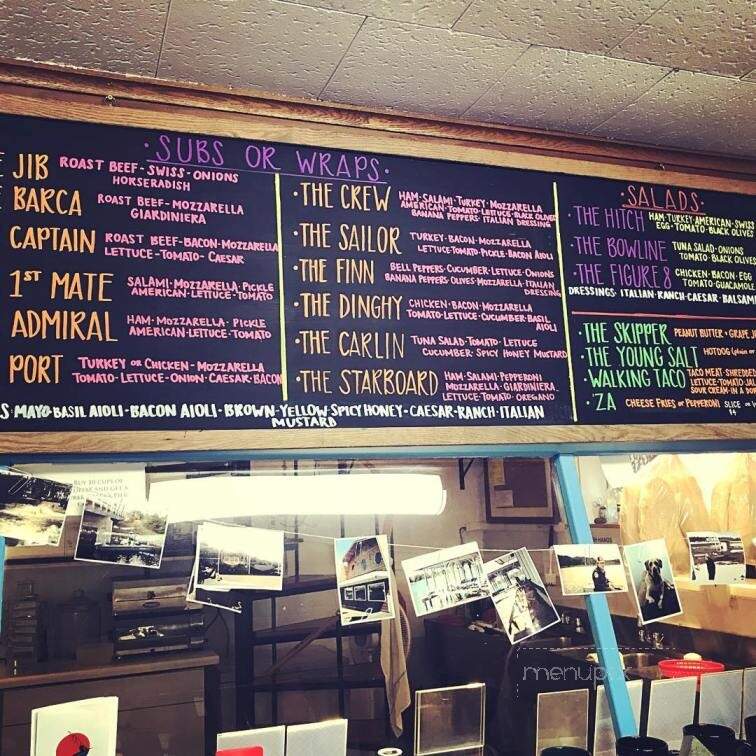 ·SUBS OR WRAPS·
E JIB ROAST BEEF-SWISS-ONIONS
HORSERADISH
BARCA ROAST BEEF-MOZZARELLA
GIARDINIERA
CAPTAIN ROAST BEEF-BACON-MOZZARELLA
LETTUCE-TOMATO-CAESAR
1ST MATE SALAMI·MOZZARELLA·PICKLE
AMERICAN·LETTUCE·TOMATO
ADMIRAL HAM·MOZZARELLA·PICKLE
AMERICAN·LETTUCE·TOMATO
PORT TURKEY OR CHICKEN-MOZZARELLA
TOMATO-LETTUCE-ONION-CAESAR-BACON
·THE CREW HAM·SALAMI·TURKEY·MOZZARELLA
AMERICAN·TOMATO·LETTUCE·BLACK OLIVES
BANANA PEPPERS·ITALIAN DRESSING
·THE SAILOR TURKEY·BACON·MOZZARELLA
LETTUCE·TOMATO·PICKLE·BACON AIOLI
·THE FINN BELL PEPPERS·CUCUMBER·LETTUCE·ONIONS
BANANA PEPPERS·OLIVES·MOZZARELLA·ITALIAN
DRESSING
·THE DINGHY CHICKEN·BACON·MOZZARELLA
TOMATO·LETTUCE·CUCUMBER·BASIL
AIOLI
·THE CARLIN TUNA SALAD·TOMATO·LETTUCE
CUCUMBER·SPICY HONEY MUSTARD
·THE STARBOARD HAM·SALAMI·PEPPERONI
MOZZARELLA·GIARDINIERA
LETTUCE·TOMATO·OREGANO
S·MAYO·BASIL AIOLI·BACON AIOLI·BROWN·YELLOW·SPICY HONEY-CAESAR·RANCH·ITALIAN
MUSTARD
·SALADS·
·THE HITCH HAM·TURKEY·AMERICAN·SWISS
EGG·TOMATO·BLACK OLIVES
·THE BOWLINE TUNA SALAD·ONIONS
TOMATO·BLACK OLIVES
·THE FIGURE 8 CHICKEN·BACON·EGG
TOMATO·GUACAMOLE
DRESSINGS·ITALIAN·RANCH·CAESAR·BALSAM
·THE SKIPPER PEANUT BUTTER + GRAPE J
·THE YOUNG SALT HOTDOG
·WALKING TACO TACO MEAT·SHREDDED
LETTUCE·TOMATO·JA
SOUR CREAM·IN A DOR
·'ZA CHEESE FRIES OR PEPPERONI SLICE
$4
BUY 10 CUPS OF
HANDS
menupix